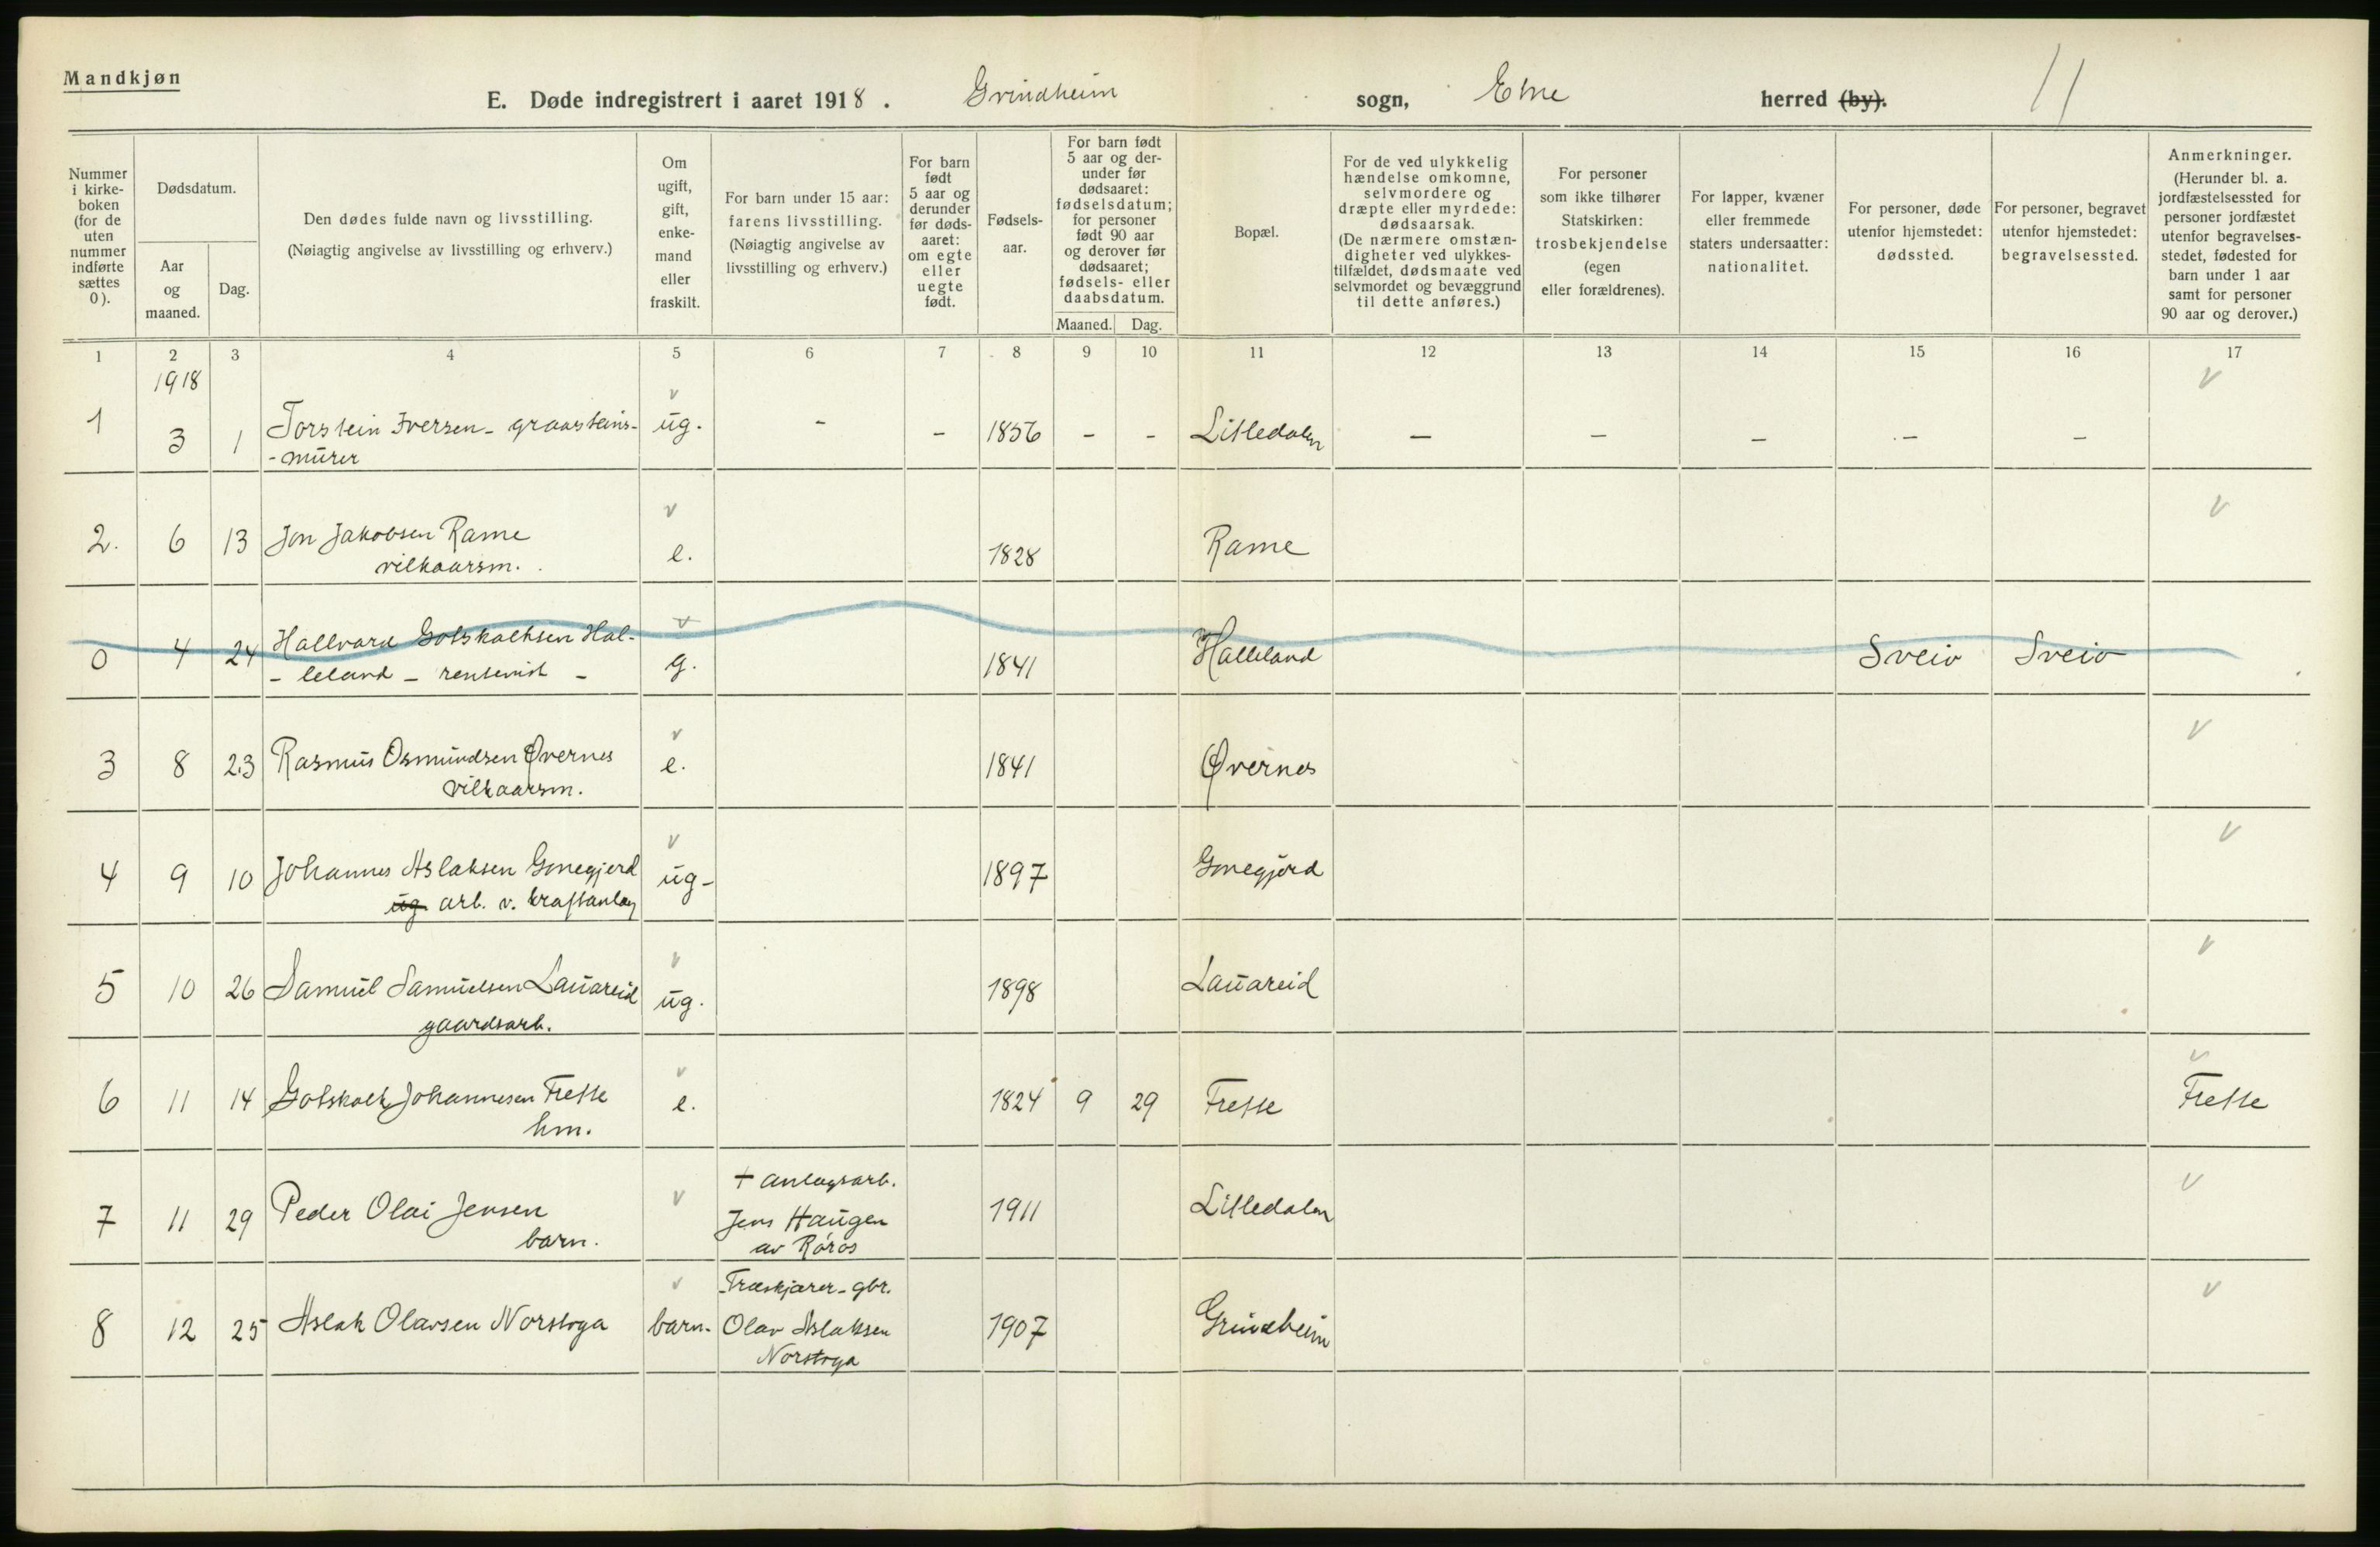 Mandkjøn
E. Døde indregistrert i aaret 1918. Grindheim sogn, Etne herred (by). 11
Nummer i kirke-boken (for de uten nummer indførte sættes 0).
Dødsdatum.
Aar og maaned.
Dag.
Den dødes fulde navn og livsstilling.
(Nøiagtig angivelse av livsstilling og erhverv.)
Om ugift, gift, enke-mand eller fraskilt.
For barn under 15 aar: farens livsstilling.
(Nøiagtig angivelse av livsstilling og erhverv.)
For barn født 5 aar og derunder før døds-aaret: om egte eller uegte født.
Fødsels-aar.
For barn født 5 aar og der-under før dødsaaret: fødselsdatum; for personer født 90 aar og derover før dødsaaret; fødsels- eller daabsdatum.
Maaned. Dag.
Bopæl.
For de ved ulykkelig hændelse omkomne, selvmordere og dræpte eller myrdede: dødsaarsak.
(De nærmere omstæn-digheter ved ulykkes-tilfældet, dødsmaate ved selvmordet og bevæggrund til dette anføres.)
For personer som ikke tilhører Statskirken: trosbekjendelse (egen eller forældrenes).
For lapper, kvæner eller fremmede staters undersaatter: nationalitet.
For personer, døde utenfor hjemstedet: dødssted.
For personer, begravet utenfor hjemstedet: begravelsessted.
Anmerkninger.
(Herunder bl. a. jordfæstelsessted for personer jordfæstet utenfor begravelses-stedet, fødested for barn under 1 aar samt for personer 90 aar og derover.)
1 2 3 4 5 6 7 8 9 10 11 12 13 14 15 16 17
1918
1 3 1 Torstein Iversen - graasteins- ug. - - 1856 - - Litledalen - - - - -
- murer
2. 6 13 Jon Jakobsen Rame e. 1828 Rame
vilkaarsm.
0 4 24 Hallvard Gotskalksen Hal- g. 1841 Halleland Sveio Sveio
- leland - rentenist -
3 8 23 Rasmus Osmundsen Øvernes e. 1841 Øvernes
vilkaarsm.
4 9 10 Johannes Aslaksen Gonegjerd ug- 1897 Gonegjerd
ug. arb. v. kraftanlæg
5 10 26 Samuel Samuelsen Lauareid ug. 1898 Lauareid
gaardsarb.
6 11 14 Gotskalk Johannesen Frette e. 1824 9 29 Frette Frette
km.
+ anlægsarb.
7 11 29 Peder Olai Jensen Jens Haugen 1911 Litledalen
barn. av Røros
Træskjærer - gbr.
8 12 25 Aslak Olavsen Norstoga barn. Olav Aslaksen 1907 Grindheim
Norstoga